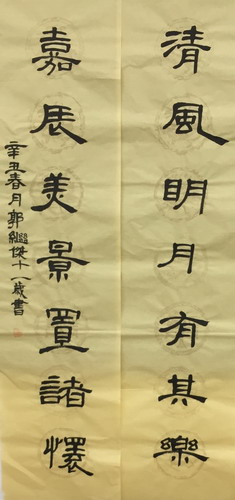 清風明月有其樂
嘉辰美景置諸懷
辛丑春月郭繼傑十一歲書